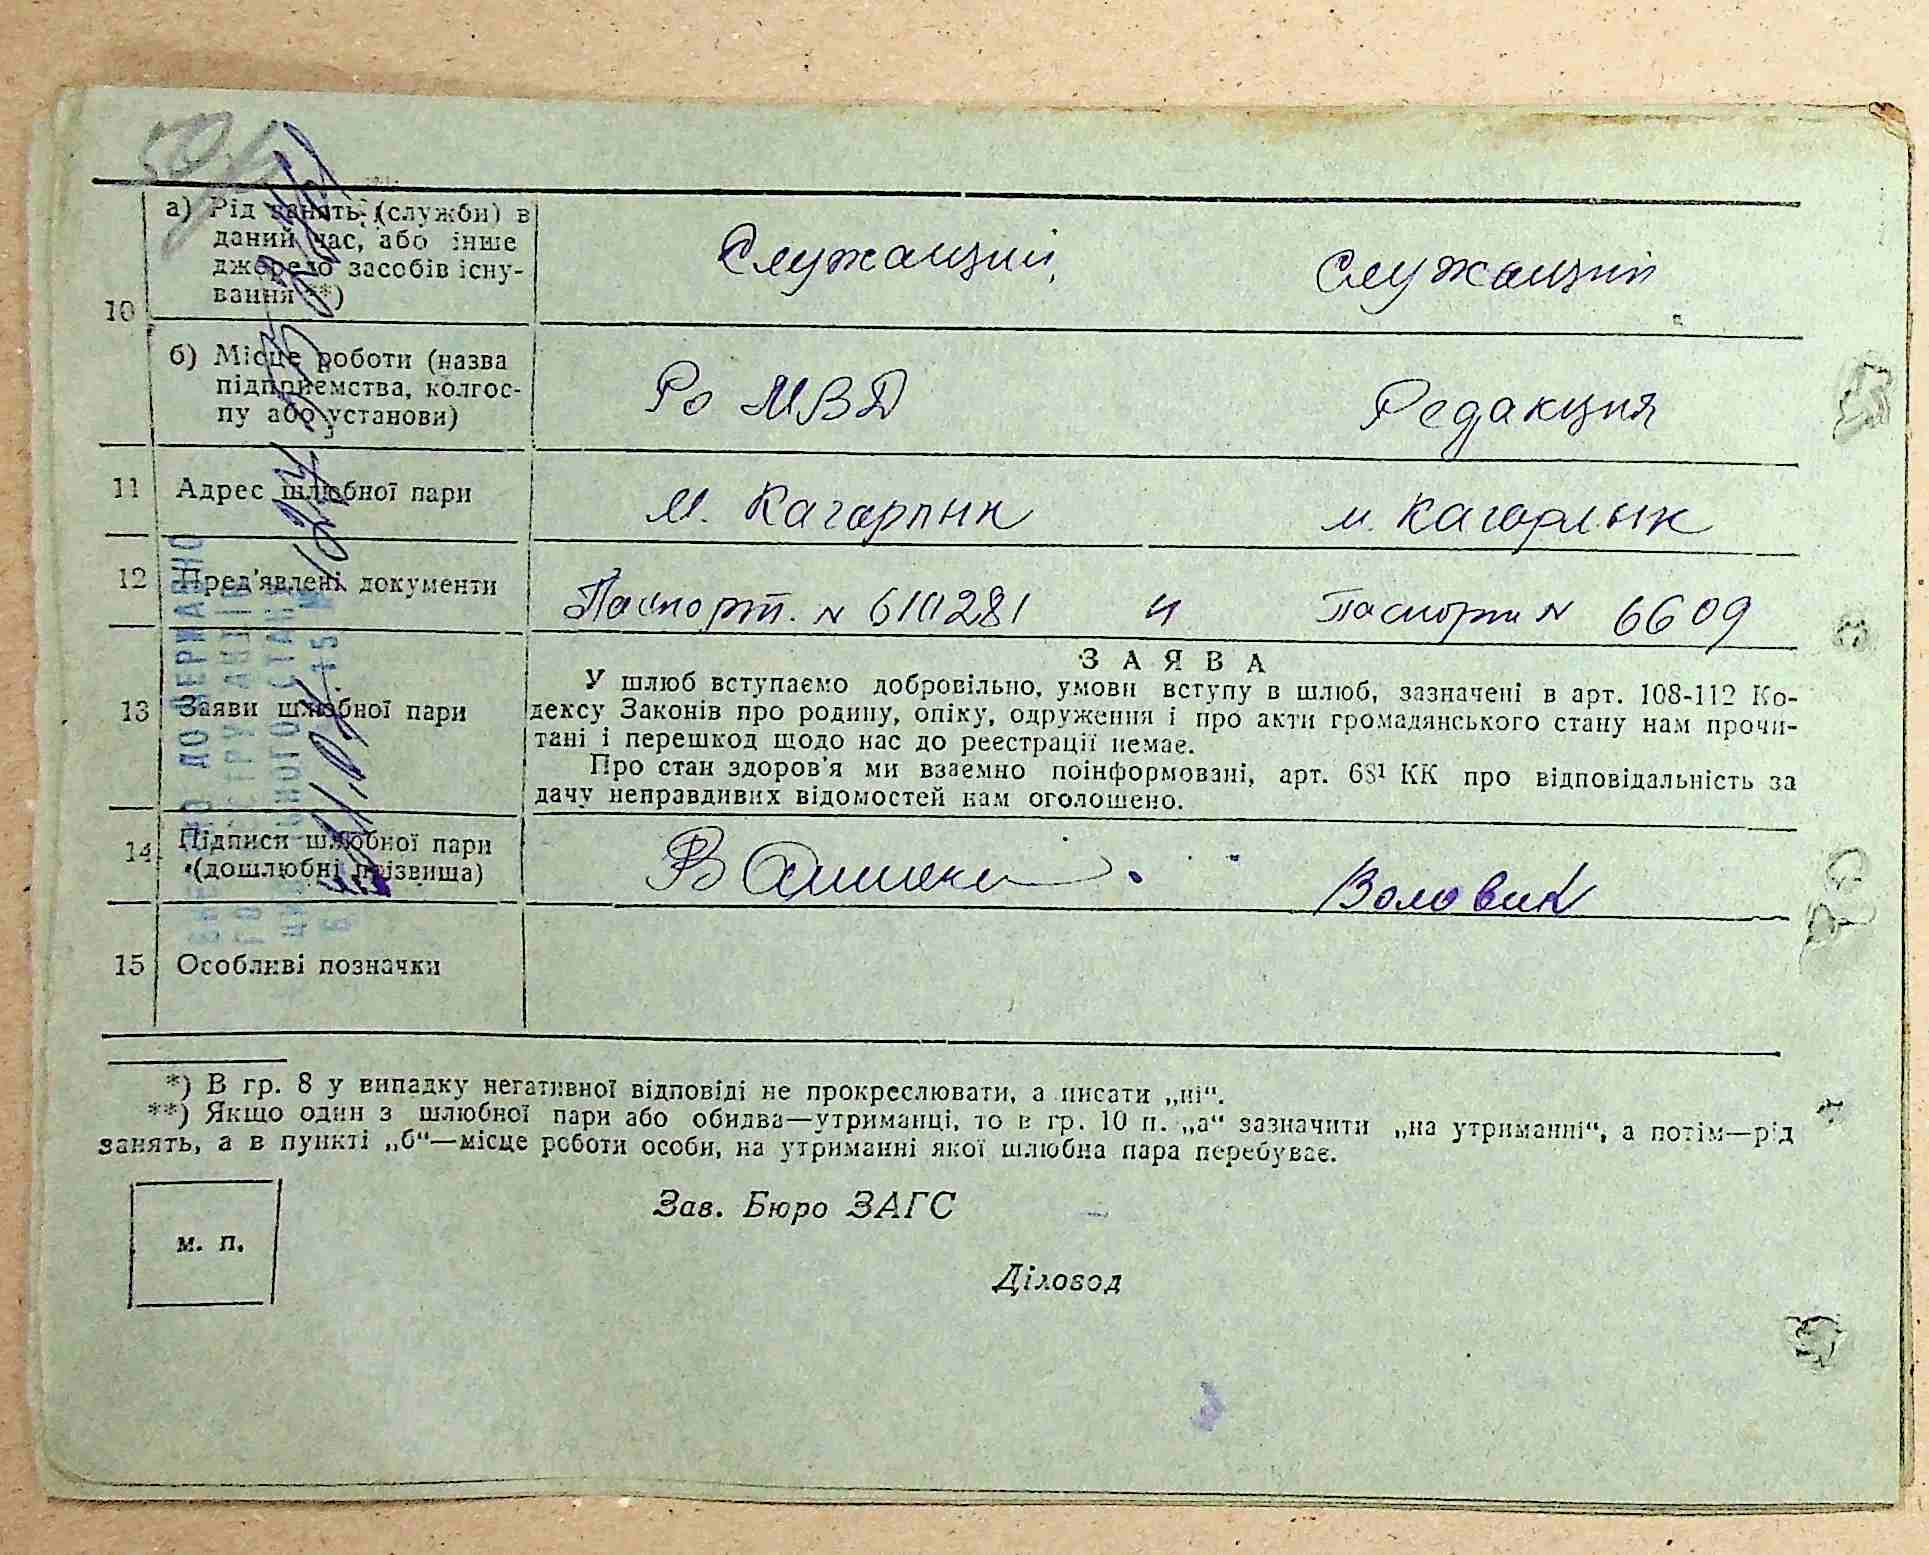 10
а) Рід занять (служби) в
даний час, або інше
джерело засобів існу-
вання **)
Служащий
Служащий
б) Місце роботи (назва
підприємства, колгос-
пу або установи)
Ро МВД
Редакция
11 Адрес шлюбної пари
м. Кагарлик
м. Кагарлык
12 Пред'явлені документи
Паспорт. N 610281 и Паспорт N 6609
ЗАЯВА
13 Заяви шлюбної пари
У шлюб вступаємо добровільно, умови вступу в шлюб, зазначені в арт. 108-112 Ко-
дексу Законів про родину, опіку, одруження і про акти громадянського стану нам прочи-
тані і перешкод щодо нас до реєстрації немає.
Про стан здоров'я ми взаємно поінформовані, арт. 68¹ КК про відповідальність за
дачу неправдивих відомостей нам оголошено.
14 Підписи шлюбної пари
(дошлюбні прізвища)
Воловик
15 Особливі позначки
*) В гр. 8 у випадку негативної відповіді не прокреслювати, а писати „ні“.
**) Якщо один з шлюбної пари або обидва—утриманці, то в гр. 10 п. „а“ зазначити „на утриманні“, а потім—рід
занять, а в пункті „б“—місце роботи особи, на утриманні якої шлюбна пара перебуває.
Зав. Бюро ЗАГС
м. п.
Діловод